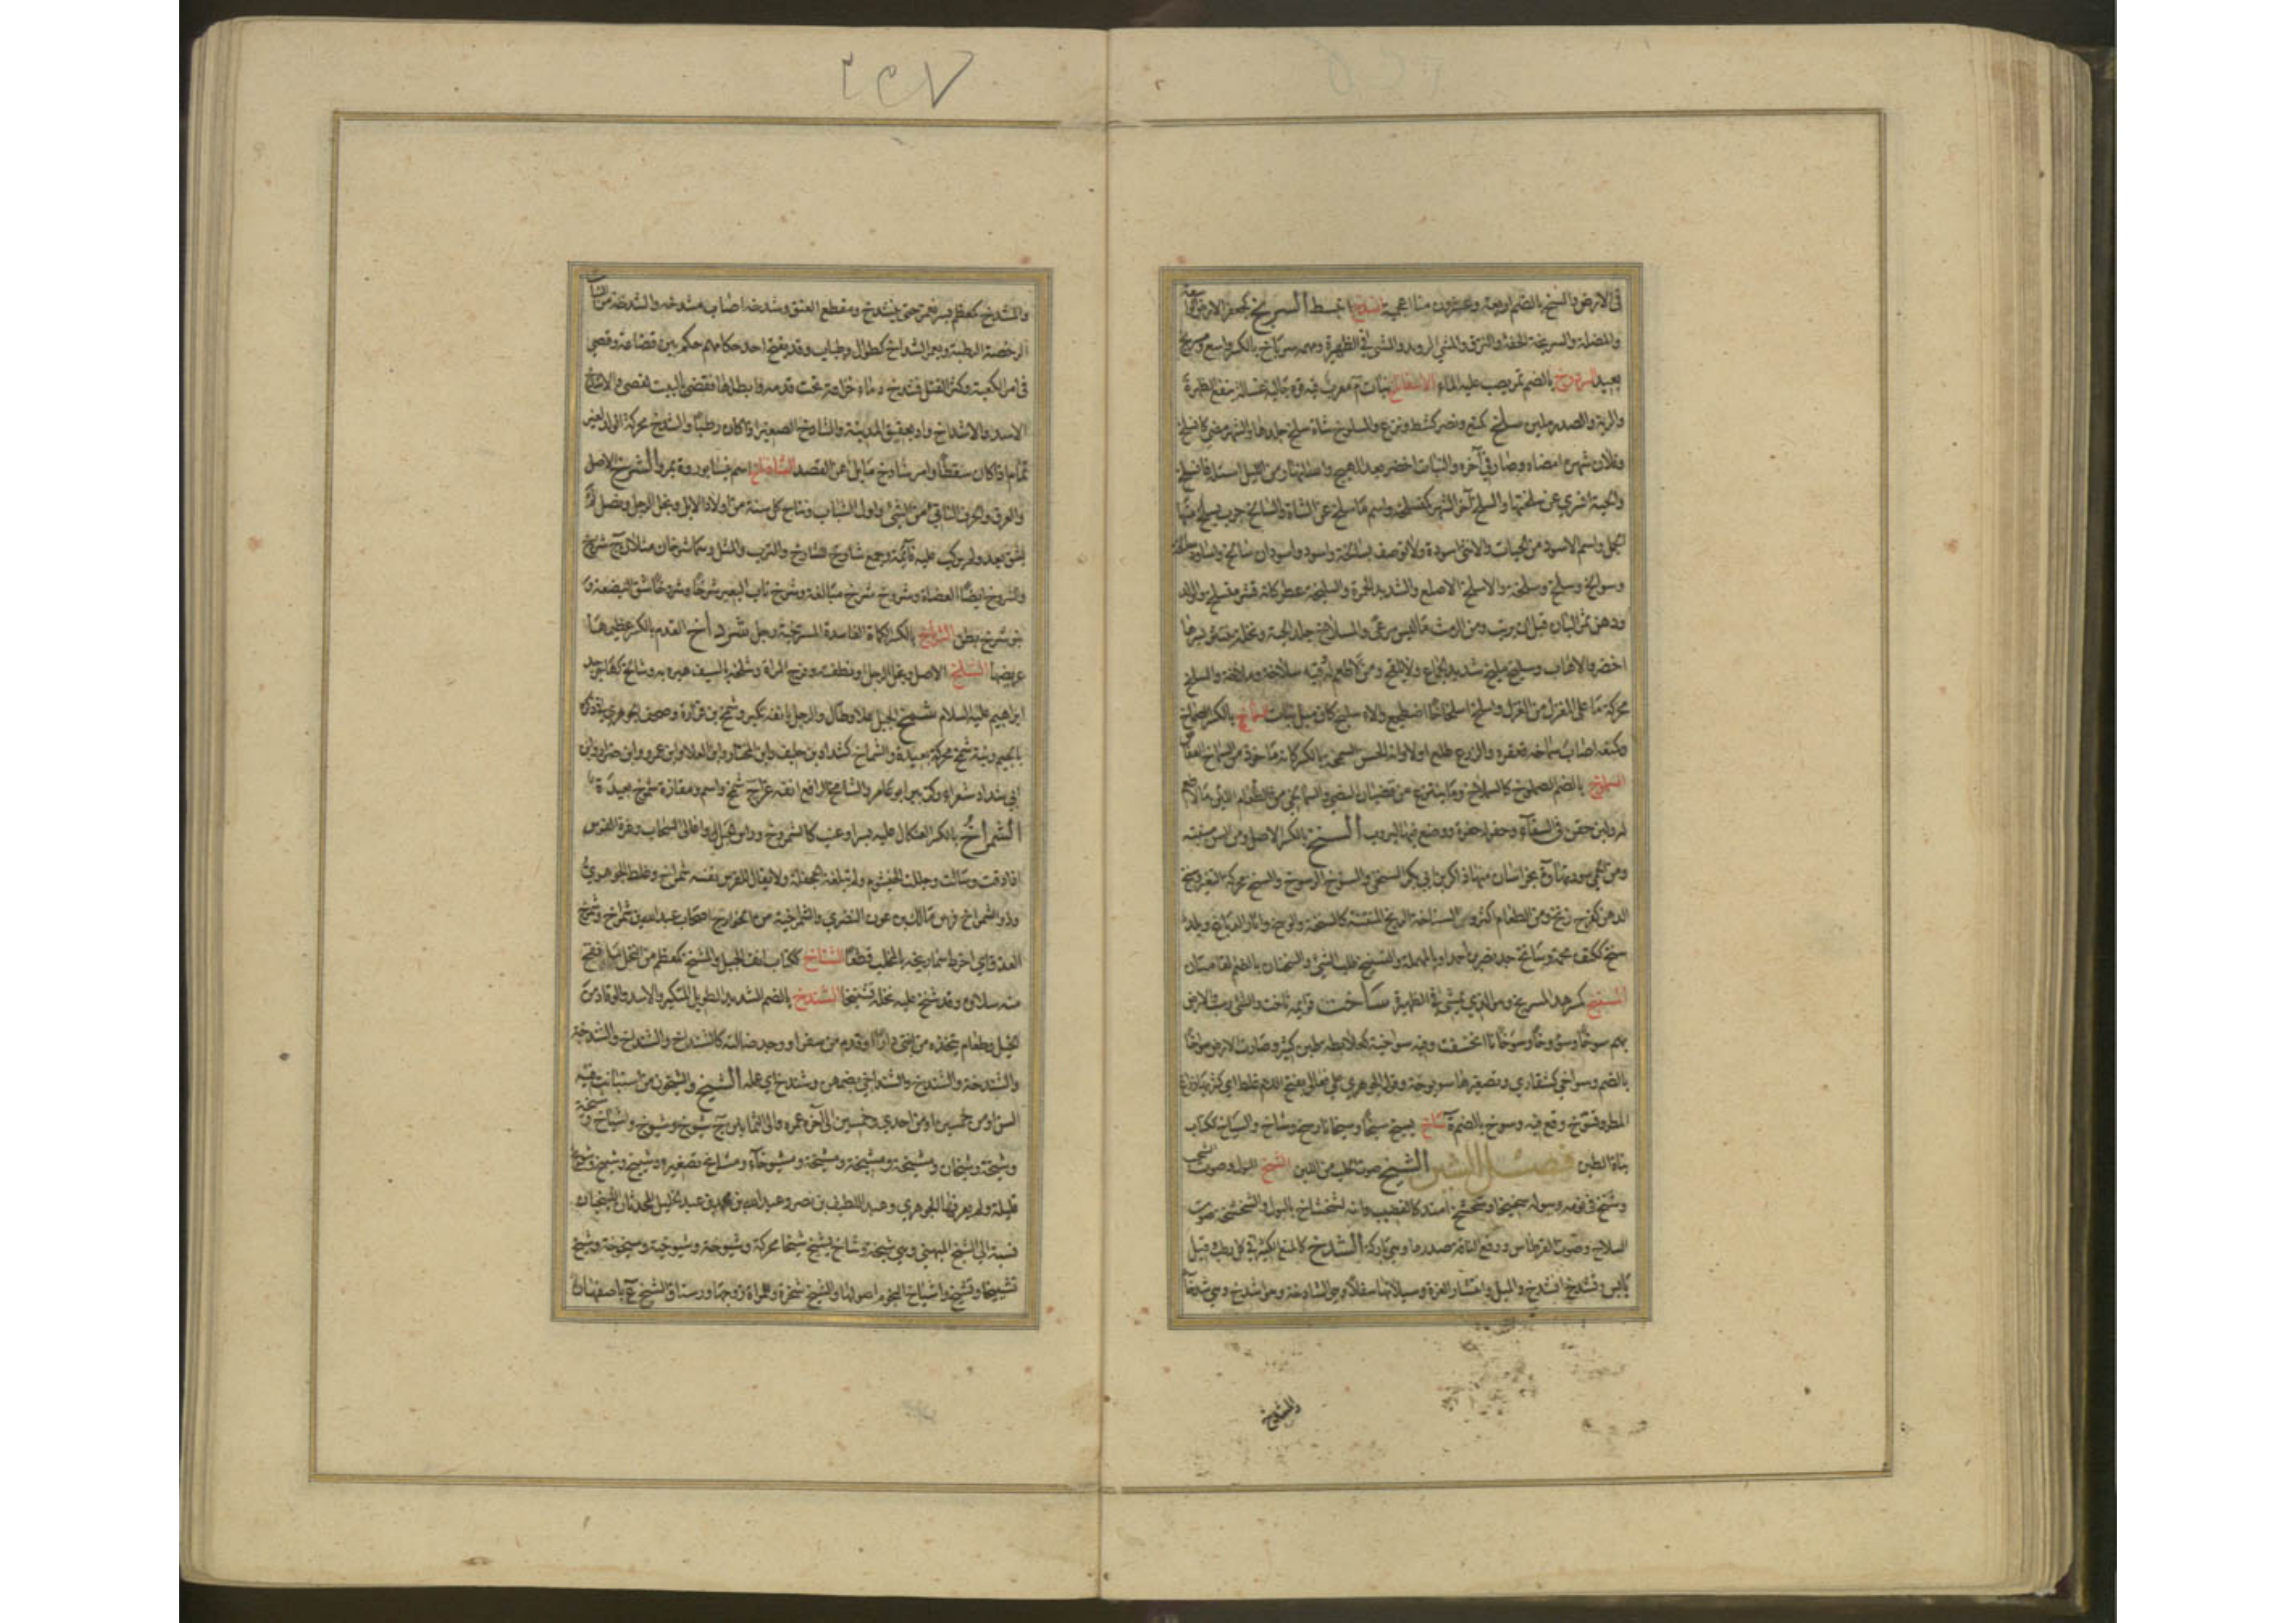 في الارض والسخ بالضم اربعة وعشرون منا اعجمية انسدخ انبسط السربخ كجعفر الارض الواسعة
والمضلة والسربخة الخفة والنزق والمشي الرويد والمشي في الظهيرة ومهمه سرباخ بالكسر واسع
بعيد بالضم تمر يصب عليه الماء الاسفاناخ نبات م معرب فيه قوة جالية غسالة ينفع الظهر
والرية والصدر ملين سلخ كمنع ونصر كشط ونزع والمسلوخ شاة سلخ جلدها والشهر مضى كانسلخ
وفلان شهره امضاه وصار في آخره والنبات اخضر بعد الهيج والله النهار من الليل استله فانسلخ
والحية انسرى عن سلختها والسلخ آخر الشهر كمنسلخه واسم ما سلخ عن الشاة والسالخ جرب يسلخ منها
الجمل واسم الاسود من الحيات والانثى اسودة ولا توصف بسالخة واسود واسودان سالخ واساود سالخة
وسوالخ وسلخ وسلخة والاسلخ الاصلع والشديد الحمرة والسليخة عطر كانه قشر منسلخ والولد
ودهن ثمر البان قبل ان يربب ومن الرمث ما ليس مرعى والمسلاخ جلد الحية ونخلة ينتثر بسرها
اخضر والاهاب وسليخ مليخ شديد الجماع ولا يلقح ومن لا طعم له وفيه سلاخة وملاخة والسلخ
محركة ما على المغزل من الغزل واسلخ اسلخاخا اضطجع والاسليخ كازميل نبات السماخ بالكسر الصماخ
وكمنعه اصاب سماخه فعقره والزرع طلع اولا وانه لحسن السمخة بالكسر كانه ماخوذ من السماخ العفاص
السملوخ بالضم الصملوخ كالسملاخ وما ينتزع من قضبان النصي والسمالخي من الطعام واللبن ما لا طعم
له ولبن حقن في السقاء وحفر له حفرة ووضع فيها ليروب السنخ بالكسر الاصل ومن السن منبته
ومن الحمى سورتها وة بخراسان منها ذاكر بن ابي بكر السنخي والسنوخ الرسوخ والسنخ محركة التغير وسنخ
الدهن كفرح زنخ ومن الطعام اكثر والسناخة الريح المنتنة كالسنخة والوسخ وآثار الدباغ وبلد
سنخ ككتف محمة وسانخ جد نصر بن احمد او بالمهملة والتسنيخ طلب الشيء والسنختان بالضم لقامتان
السنبخ كسرهد المسربخ ومن الذي يمشي في الظهيرة ساخت قوائمه ثاخت والشيء رسب والارض
بهم سوخا وسؤوخا وسوخانا انخسفت وفيه سواخية كعلابطة طين كثير وصارت الارض سواخا
بالضم وسواخى كشقارى وتصغيرها سويوخة وقول الجوهري على فعالى بفتح اللام غلط اي كثر بها رزاغ
المطر وتسوخ وقع فيه وسوخ بالضم ة ساخ يسيخ سيخا وسيخانا رسخ وساخ والسياخ ككتاب
بناة الطين فصل الشين الشبخ صوت الحلب من اللبن الشخ البول وصوت الشخب
وشخ في نومه وببوله شخيخا وشخشخ امتد كالقضيب وانه لشخشاخ بالبول والشخشخة صوت
السلاح وصوت القرطاس ورفع الناقة صدرها وهي باركة الشدخ كالمنع الكسر في كل رطب وقيل
يابس فتشدخ وانشدخ والميل وانتشار الغرة وسيلانها سفلا وهي الشادخة وهو اشدخ وهي شدخاء
والمشدخ
والمشدخ كمعظم بسر يغمز حتى ينشدخ ومقطع العنق وشدخه اصاب مشدخه والشدخة من النبات
الرخصة الرطبة ويعمر الشداخ كطوال وطياب وقد يفتح احد حكامهم حكم بين قضاعة وقصي
في امر الكعبة وكثر القتل فشدخ دماء خزاعة تحت قدمه وابطلها فقضى بالبيت لقصي والاشدخ
الاسد والاشداخ واد بعقيق المدينة والشادخ الصغير اذا كان رطبا والشدخ محركة الولد لغير
تمام اذا كان سقطا وامر شادخ مايل عن القصد الشاذياخ اسم نيسابور وة بمرو الشرخ الاصل
والعرق والحرف الناتئ من الشيء واول الشباب ونتاج كل سنة من اولاد الابل ونجل الرجل ونصل لم
يسق بعد ولم يركب عليه قائمه وجمع شارخ للشاب والترب والمثل وهما شرخان مثلان ج شروخ
والشروخ ايضا العضاه وشروخ شرخ مبالغة وشرخ ناب البعير شرخا وشروخا شق البضعة و
بنو شرخ بطن الشرياخ بالكسر الكماة الفاسدة المسترخية رجل شرداخ القدم بالكسر عظيمها
عريضها الشلخ الاصل ونجل الرجل ونطفته وفرج المراة وشلخه بالسيف هبره به وشالخ كهاجر جد
ابراهيم عليه السلام شمخ الجبل علا وطال والرجل بانفه تكبر وشمخ بن فزارة وصحف الجوهري في ذكره
بالجيم ونية شمخ محركة بعيدة والشماخ كشداد بن حليف وابن المختار وابن العلاء وابن عمرو وابن ضرار وابن
ابي شداد شعراء وكزبير ابو عامر والشامخ الرافع انفه عزا ج شمخ واسم ومفازة شموخ بعيدة
الشمراخ بالكسر العثكال عليه بسر او عنب كالشمروخ وراس الجبل واعالي السحاب وغرة الفرس
اذا دقت وسالت وجللت الخيشوم ولم تبلغ الجحفلة ولا يقال للفرس نفسه شمراخ وغلط الجوهري
وذو الشمراخ فرس مالك بن عون النضري والشمراخية من الخوارج اصحاب عبد الله بن شمراخ وشمرخ
العذق اي اخرط شماريخه بالمخلب قطعا الشناخ ككتاب انف الجبل والمشنخ كمعظم من النخل ما نقح
منه سلاؤه وقد شنخ عليه نخله تشنيخا الشندخ بالضم الشديد الطويل المكتنز والاسد والوقاد من
الخيل وطعام يتخذه من ابتنى دارا او قدم من سفر او وجد ضالته كالشنداخ والشنداخ والشندخة
والشندخة والشندخ والشنداخي بضمهن وشندخ اي عمله الشيخ والشيخون من استبانت فيه
السن او من خمسين او من احدى وخمسين الى آخر عمره والى الثمانين ج شيوخ وشيوخ واشياخ وشيخة
وشيخة وشيخان ومشيخة ومشيخة ومشيخة ومشيوخاء ومشايخ تصغيره شييخ وشييخ وشويخ
قليلة ولم يعرفها الجوهري وعبد اللطيف بن نصر وعبد الله بن محمد بن عبد الجليل المحدثان الشيخيان
نسبة الى الشيخ الميهني وهي شيخة وشاخ يشيخ شيخا محركة وشيوخة وشيوخية وشيخوخة وشيخ
تشييخا وتشيخ واشياخ النجوم اصولها والشيخ شجرة وللمراة زوجها ورستاق الشيخ ع باصفهان